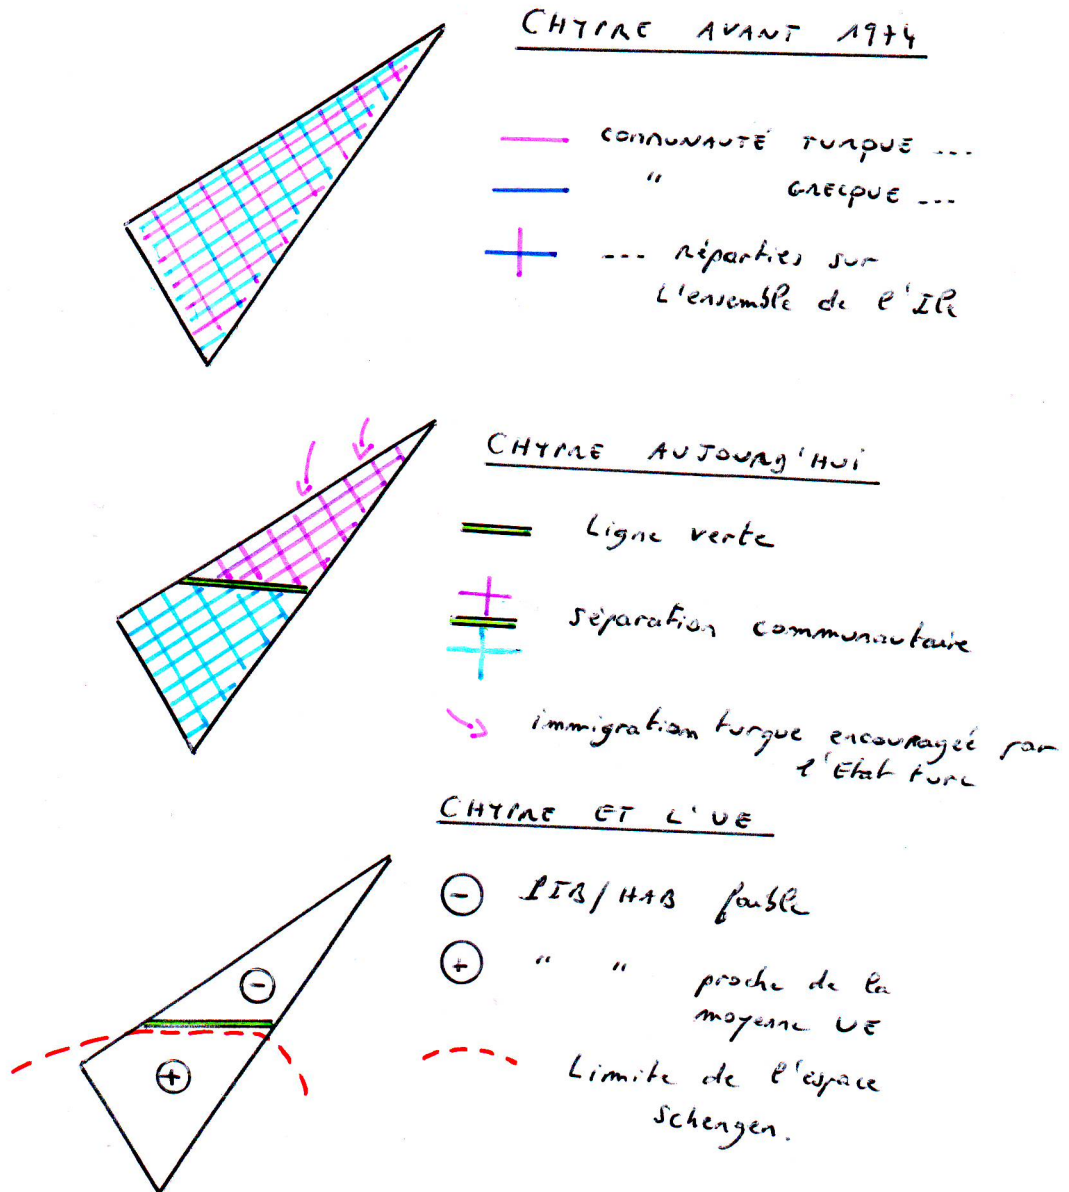 CHYPRE AVANT 1974
COMMUNAUTÉ TURQUE ...
" GRECQUE ...
... réparties sur
L'ensemble de l'Ile
CHYPRE AUJOURD'HUI
Ligne verte
séparation communautaire
immigration turque encouragée par
l'Etat turc
CHYPRE ET L'UE
- PIB/HAB faible
+ " " proche de la
moyenne UE
Limite de l'espace
Schengen.
-
+